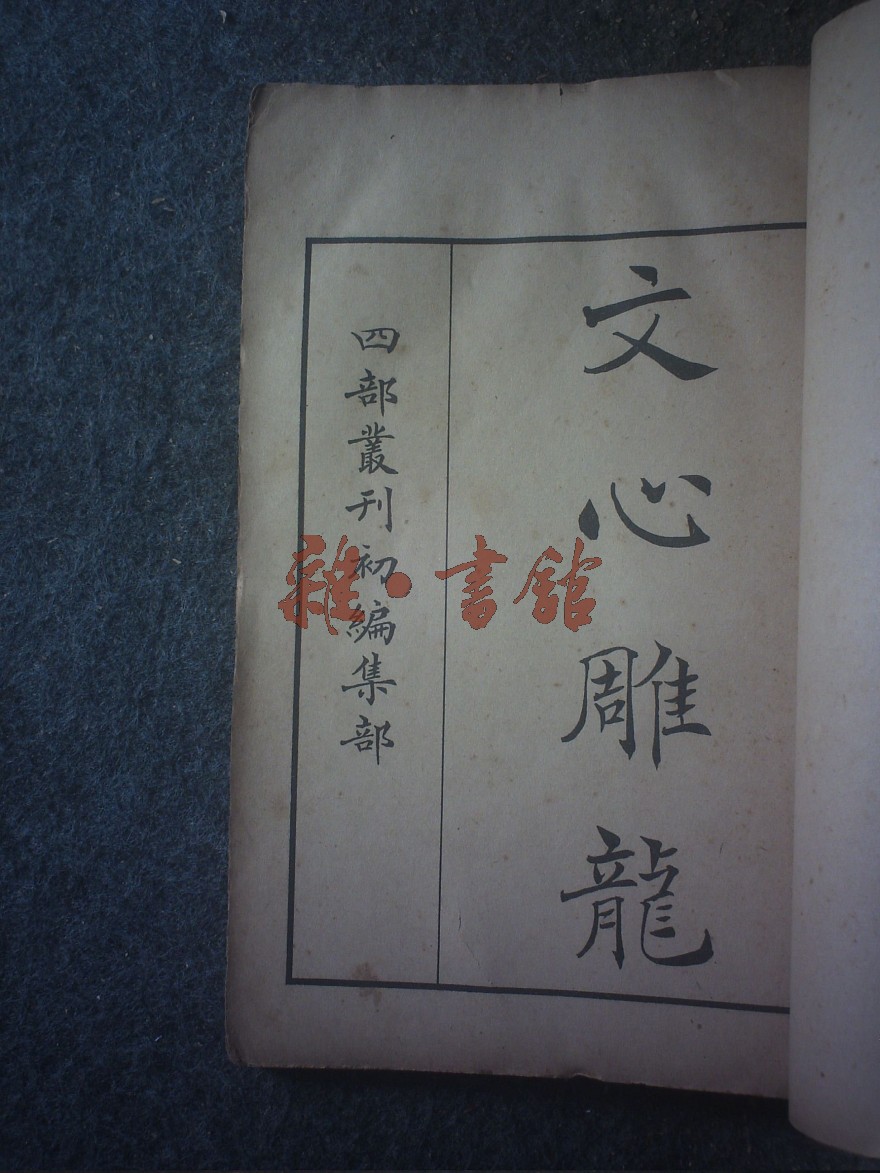 文心雕龍
四部叢刊初編集部
雜·書館